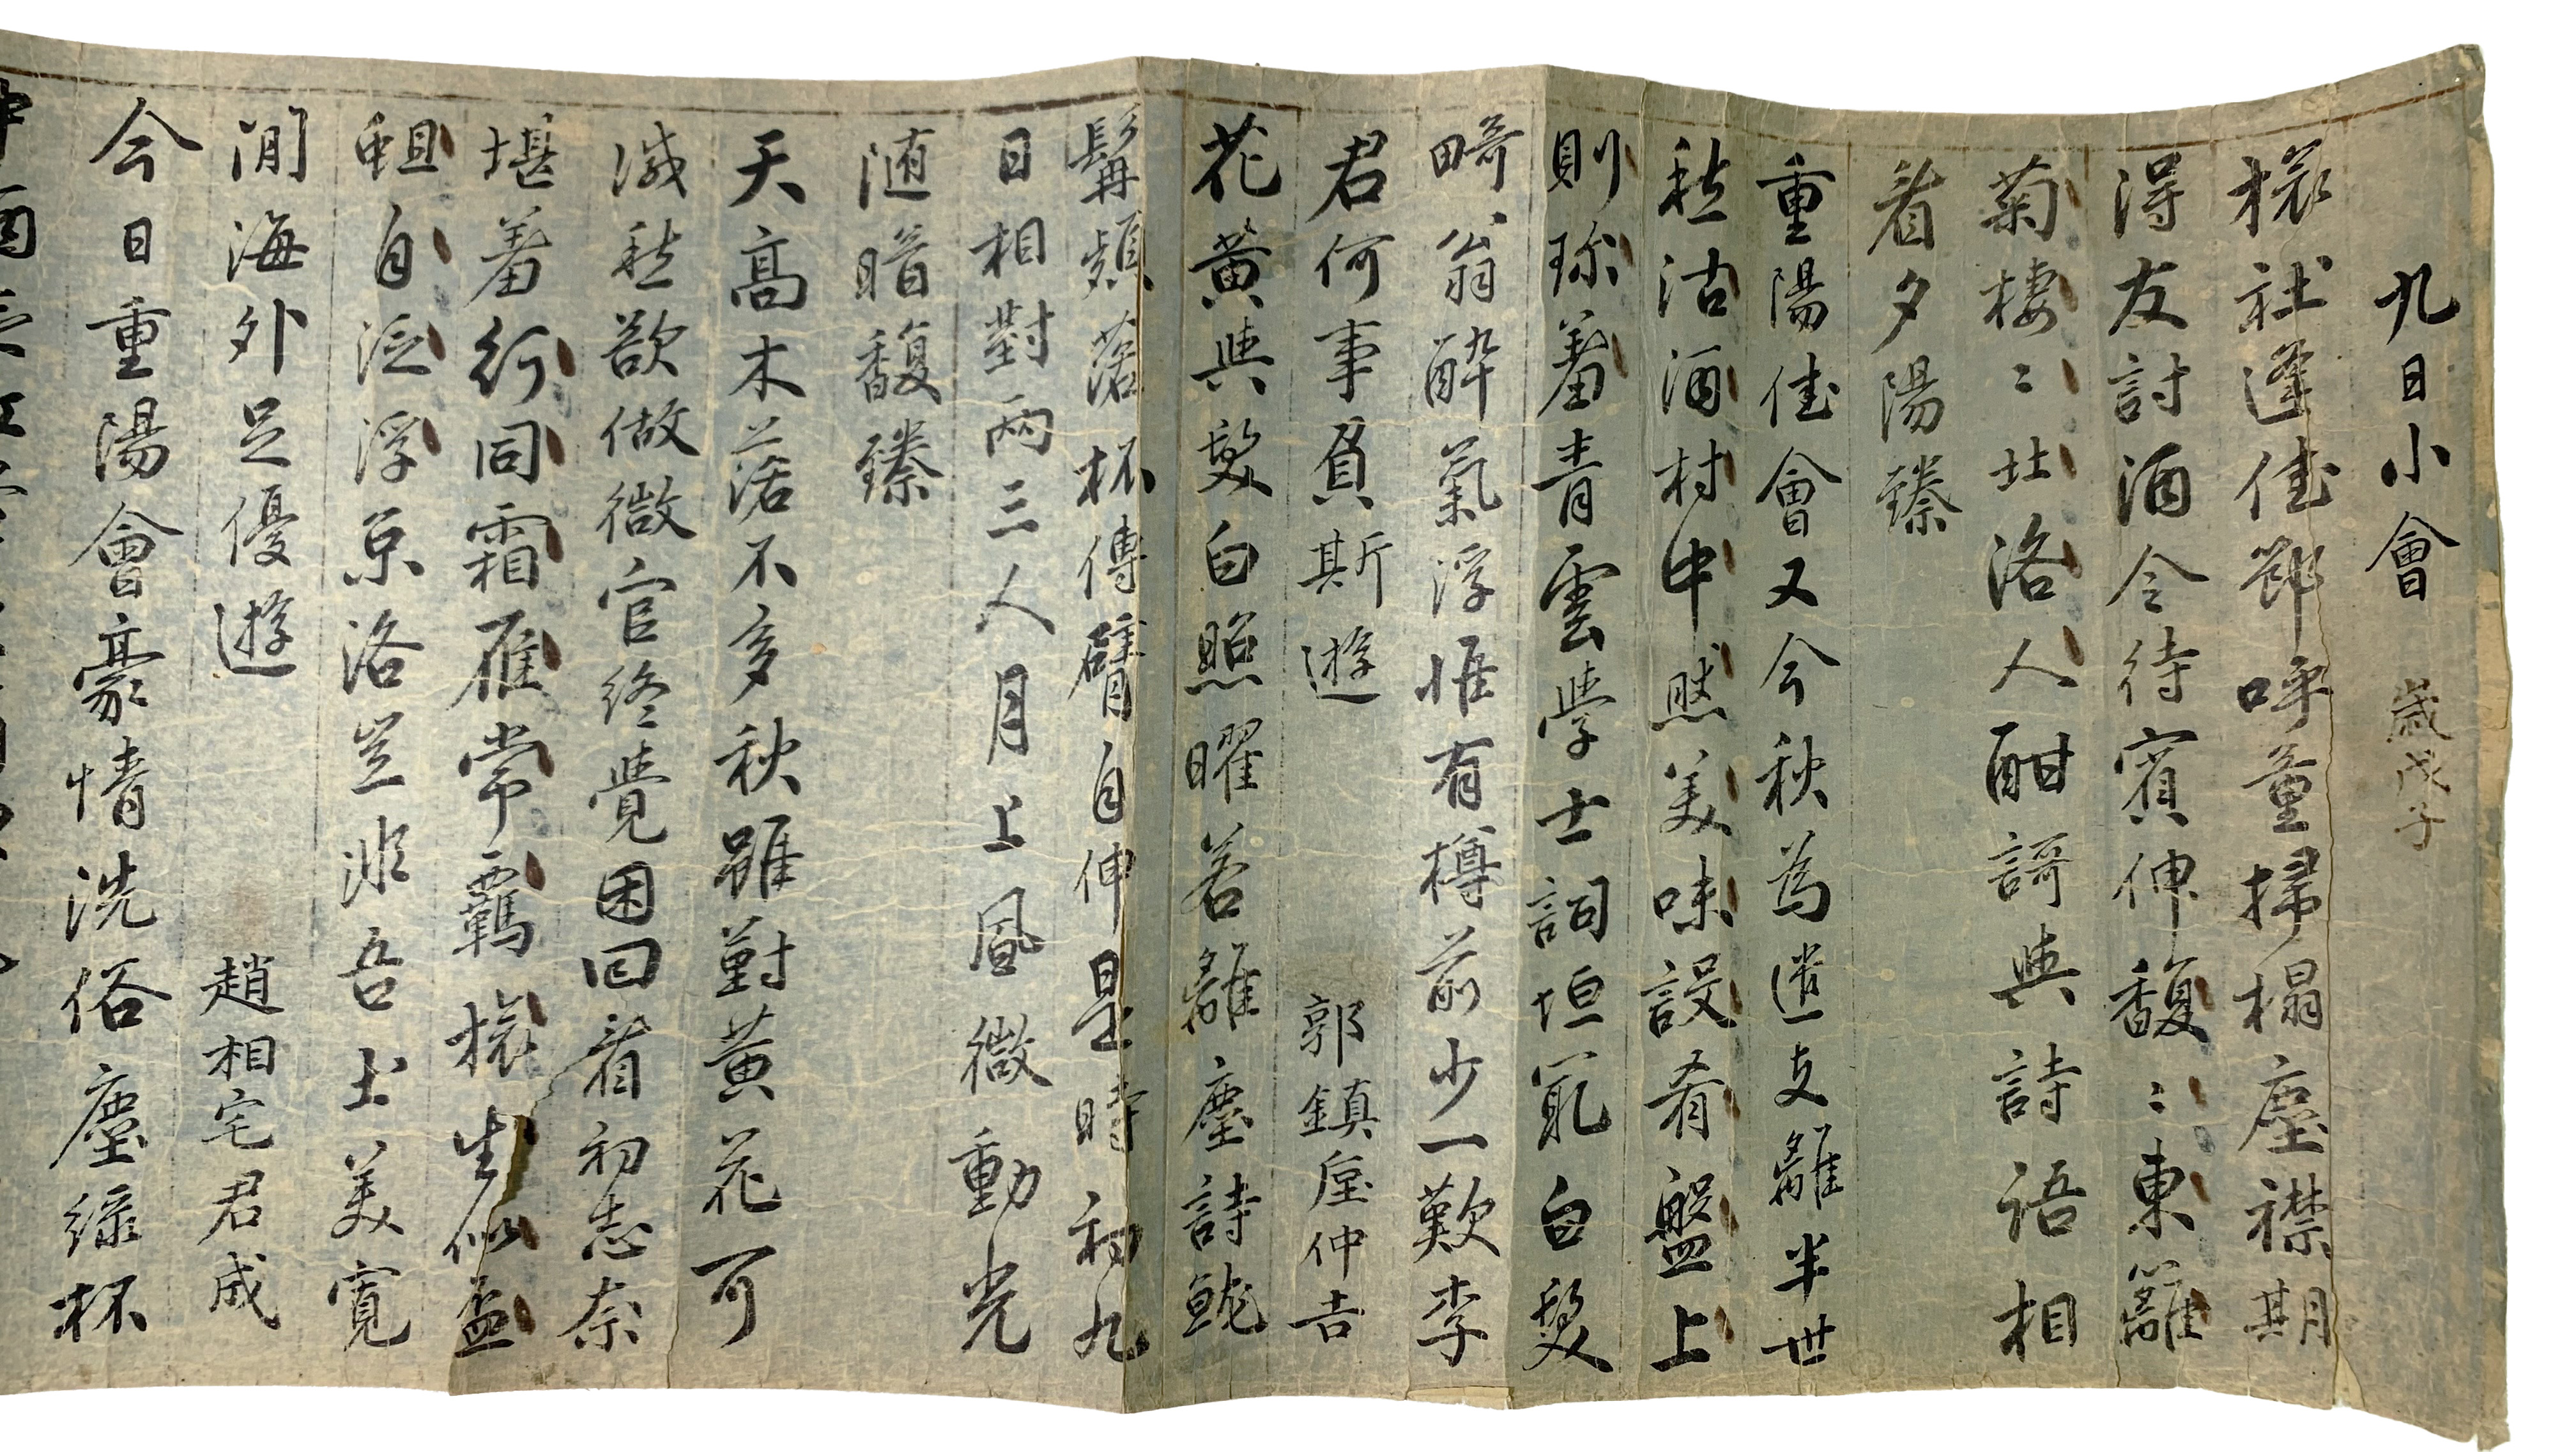 九日小會 歲戊子
槎社逢佳節呼童掃榻塵襟期
得友討酒令待賓伸馥〻東籬
菊棲〻北洛人酣謌與詩語相
看夕陽臻
重陽佳會又今秋為遣支離半世
愁沽酒村中然美味設肴盤上
則珎羞青雲學士詞垣冣白髮
畸翁醉氣浮惟有樽前少一歎李
君何事負斯遊 郭鎮垕仲吉
花黃與髮白照曜若離塵詩
髯頻落杯傳臂自伸是時初九
日相對兩三人月上風微動光
随暗馥臻
天高木落不多秋雖對黃花可
減愁欲做微官終覺困回看初志奈
堪羞行同霜雁常羈槎生似盃
蛆自泛浮京洛豈非吾土美寬
閒海外足優遊 趙相宅君成
今日重陽會豪情洗俗塵綠杯